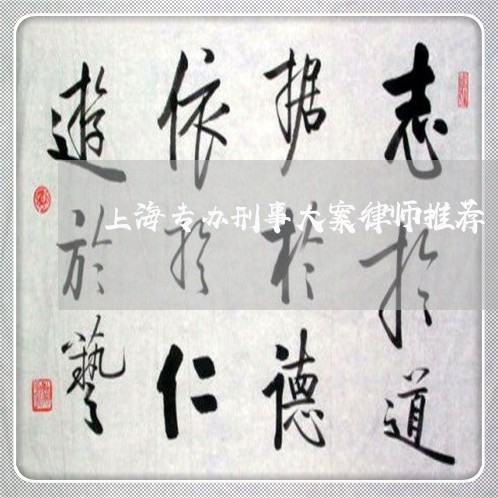 志於道
据於德
依於仁
遊於藝
上海专办刑事大案律师推荐